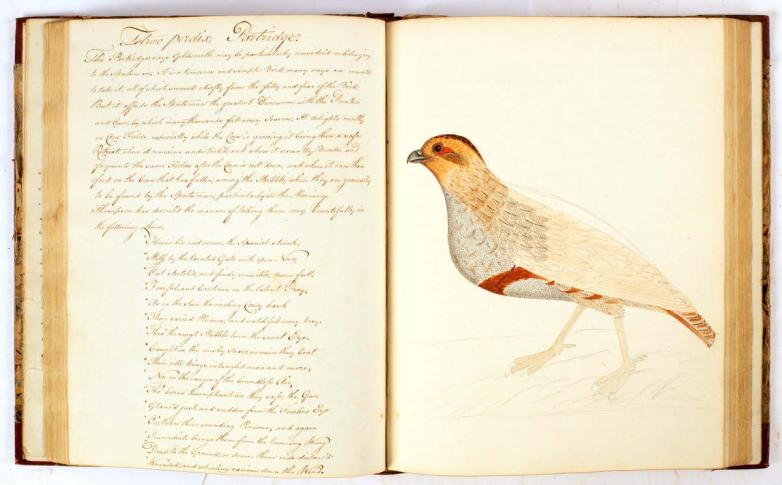 Tetrao perdix. Partridge.
The Partridge says Goldsmith may be particularly considered as belonging
to the Sportsman. It is a timorous and simple Bird, many ways are
to take it, all of which succeed chiefly from the folly and fear of the Bird
But it affords the Sportsman the greatest Diversion with the Pointer
and Gun, by which many thousands fall every Season. It delights mostly
in Corn Fields, especially while the Corn is growing it being then a safe
Retreat, where it remains undisturbed, and where it usually Breeds, and
frequents the same Fields after the Corn is cut down, and where it can then
feed on the Corn that has fallen, among the Stubble, where they are generally
to be found by the Sportsman, particularly in the Morning.
Thomson has described the manner of taking them very beautifully in
the following Lines.
How in his mid career, the Spaniel struck,
Stiff, by the tainted Gale, with open Nose,
Out stretch'd, and finely sensible, draws full,
Fearful and Cautious, on the latent Prey,
As in the Sun the circling Covey bask
Their varied Plumes, and watchful every way,
Thro' the rough Stubble turn the secret Eye.
Caught in the meshy Snare, in vain they beat
Their idle Wings, entangled more and more,
Nor on the surges of the boundless Air,
Tho' borne triumphant are they safe; the Gun
Glanc'd just, and sudden from the Fowlers Eye
O'ertakes their sounding Pinions, and again
Immediate brings them from the towering Wing
Dead to the Ground, or drives them wide dispers'd
Wounded, and wheeling various down the Wind.